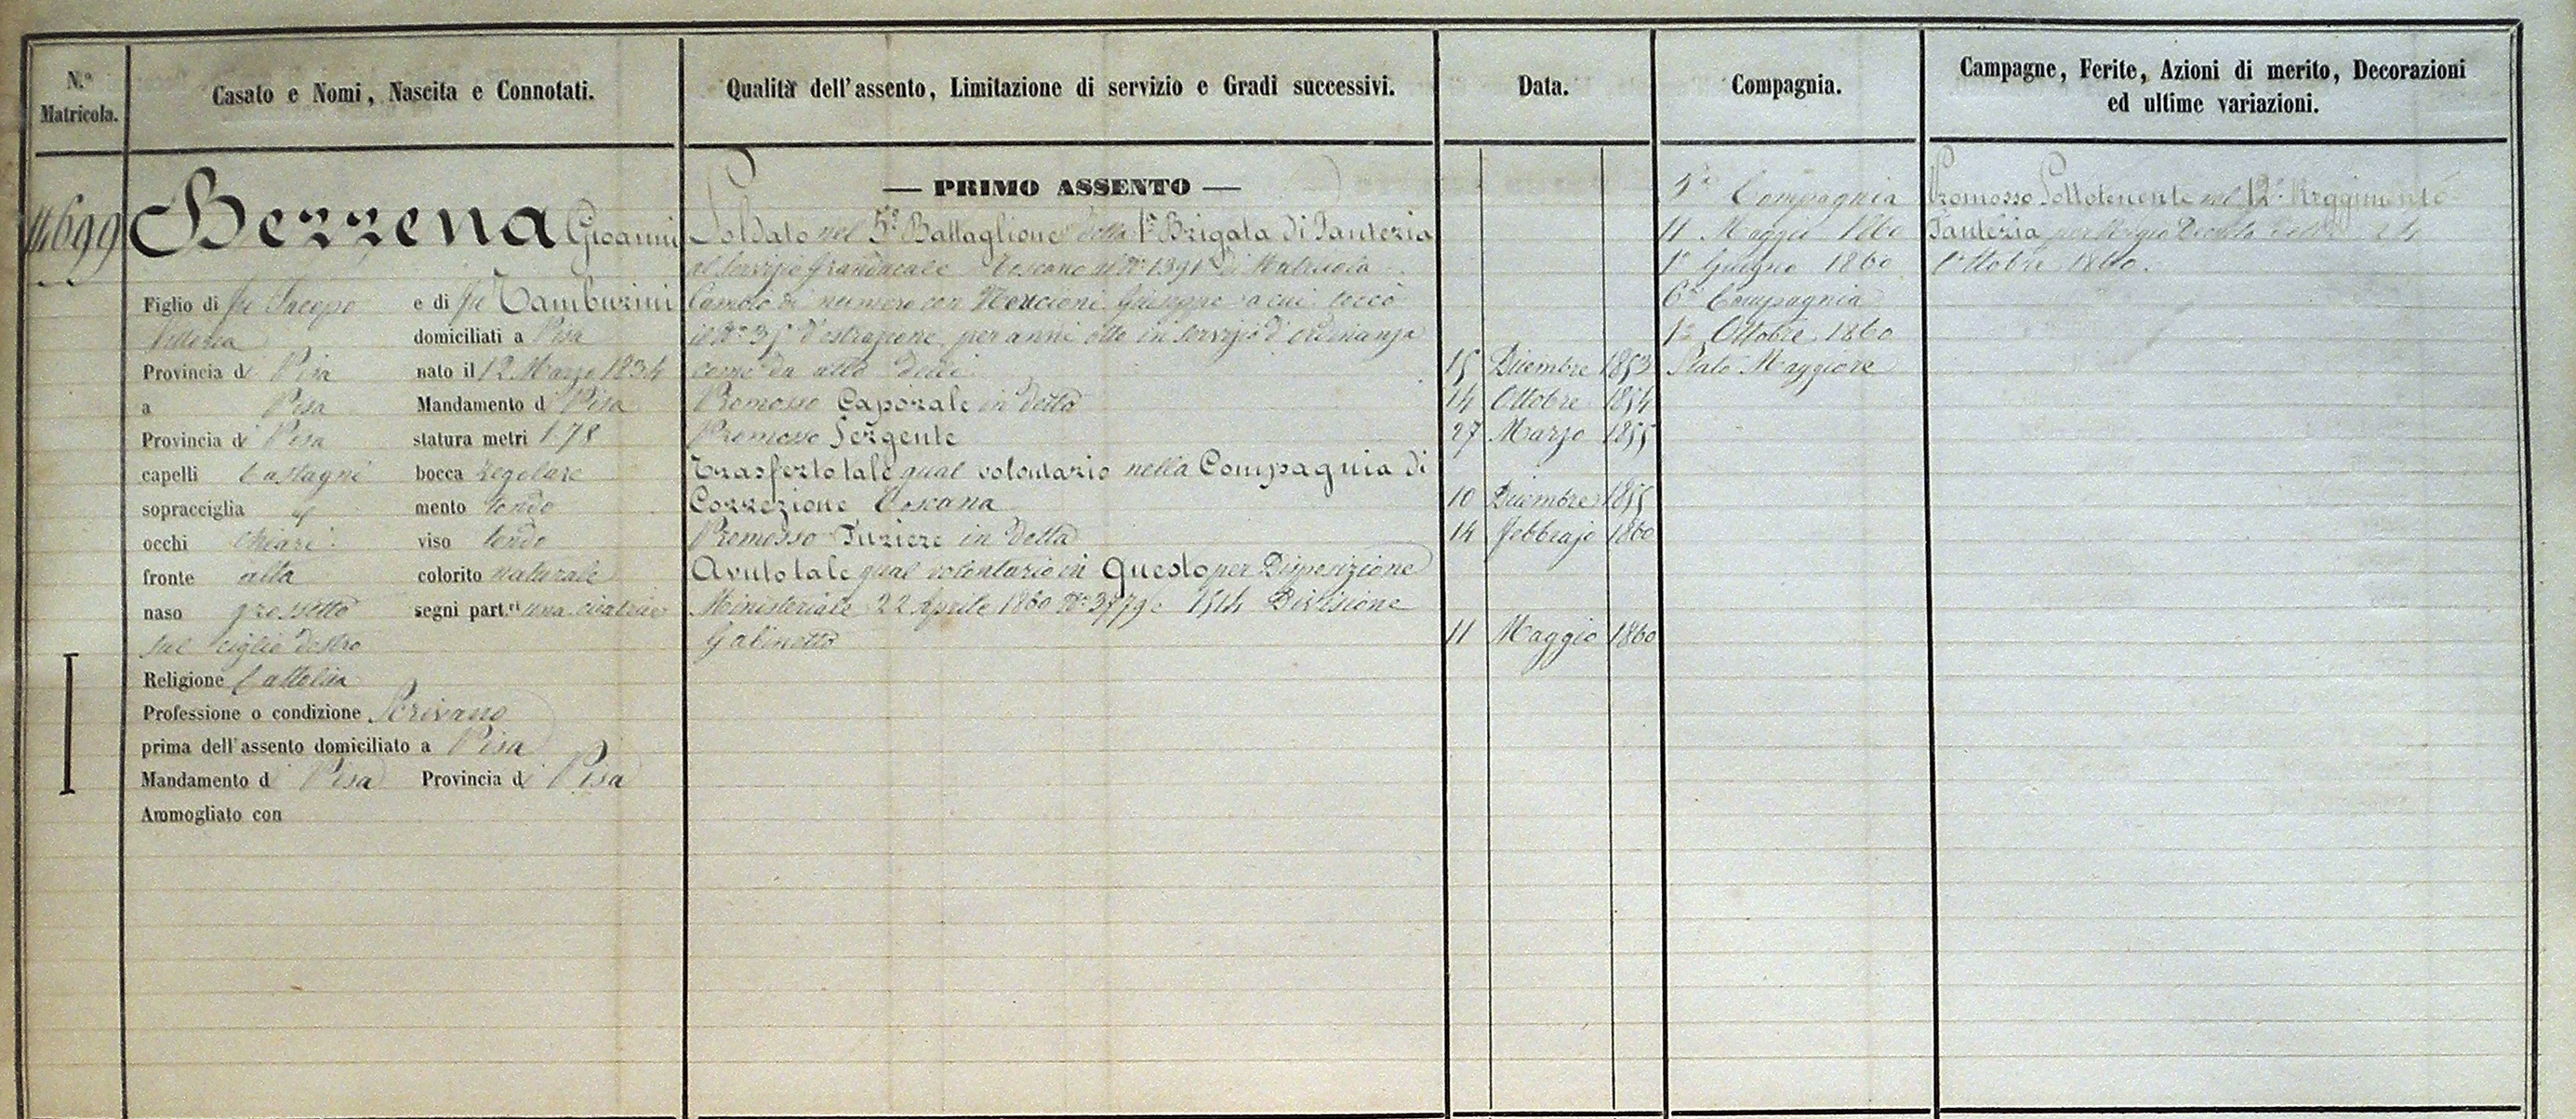 N.º Matricola.
Casato e Nomi, Nascita e Connotati.
Qualità dell'assento, Limitazione di servizio e Gradi successivi.
Data.
Compagnia.
Campagne, Ferite, Azioni di merito, Decorazioni
ed ultime variazioni.
11699
Berrena Gioanni
Figlio di fu Jacopo e di fu Tamburini
domiciliati a Pisa
Provincia di Pisa nato il 12 Marzo 1834
a Pisa Mandamento di Pisa
Provincia di Pisa statura metri 1.78
capelli Castagni bocca regolare
sopracciglia id mento tondo
occhi chiari viso tondo
fronte alta colorito naturale
naso grossetto segni part.ri una cicatrice
sul ciglio destro
Religione Cattolica
Professione o condizione Scrivano
prima dell'assento domiciliato a Pisa
Mandamento di Pisa Provincia di Pisa
Ammogliato con
— PRIMO ASSENTO —
Soldato nel 5º Battaglione della 1ª Brigata di Fanteria
al servizio Granducale Toscano al Nº 1391 di Matricola
Cambiò di numero con Neucioni Giuseppe a cui toccò
il Nº 35 d'estrazione per anni otto in servizio d'ordinanza
come da atto
15 Dicembre 1853
Promosso Caporale in detto
14 Ottobre 1854
Promosso Sergente
27 Marzo 1855
Trasferto tale qual volontario nella Compagnia di
Correzione Toscana
10 Dicembre 1855
Promosso Furiere in detta
14 Febbrajo 1860
Avuto tale qual volontario in Questo per Disposizione
Ministeriale 22 Aprile 1860 Nº 3779 Divisione
Gabinetto
11 Maggio 1860
Compagnia
11 Maggio 1860
1º Giugno 1860
6ª Compagnia
1º Ottobre 1860
Stato Maggiore
Promosso Sottotenente nel 12º Reggimento
Fanteria per Regio Decreto 24
Ottobre 1860.